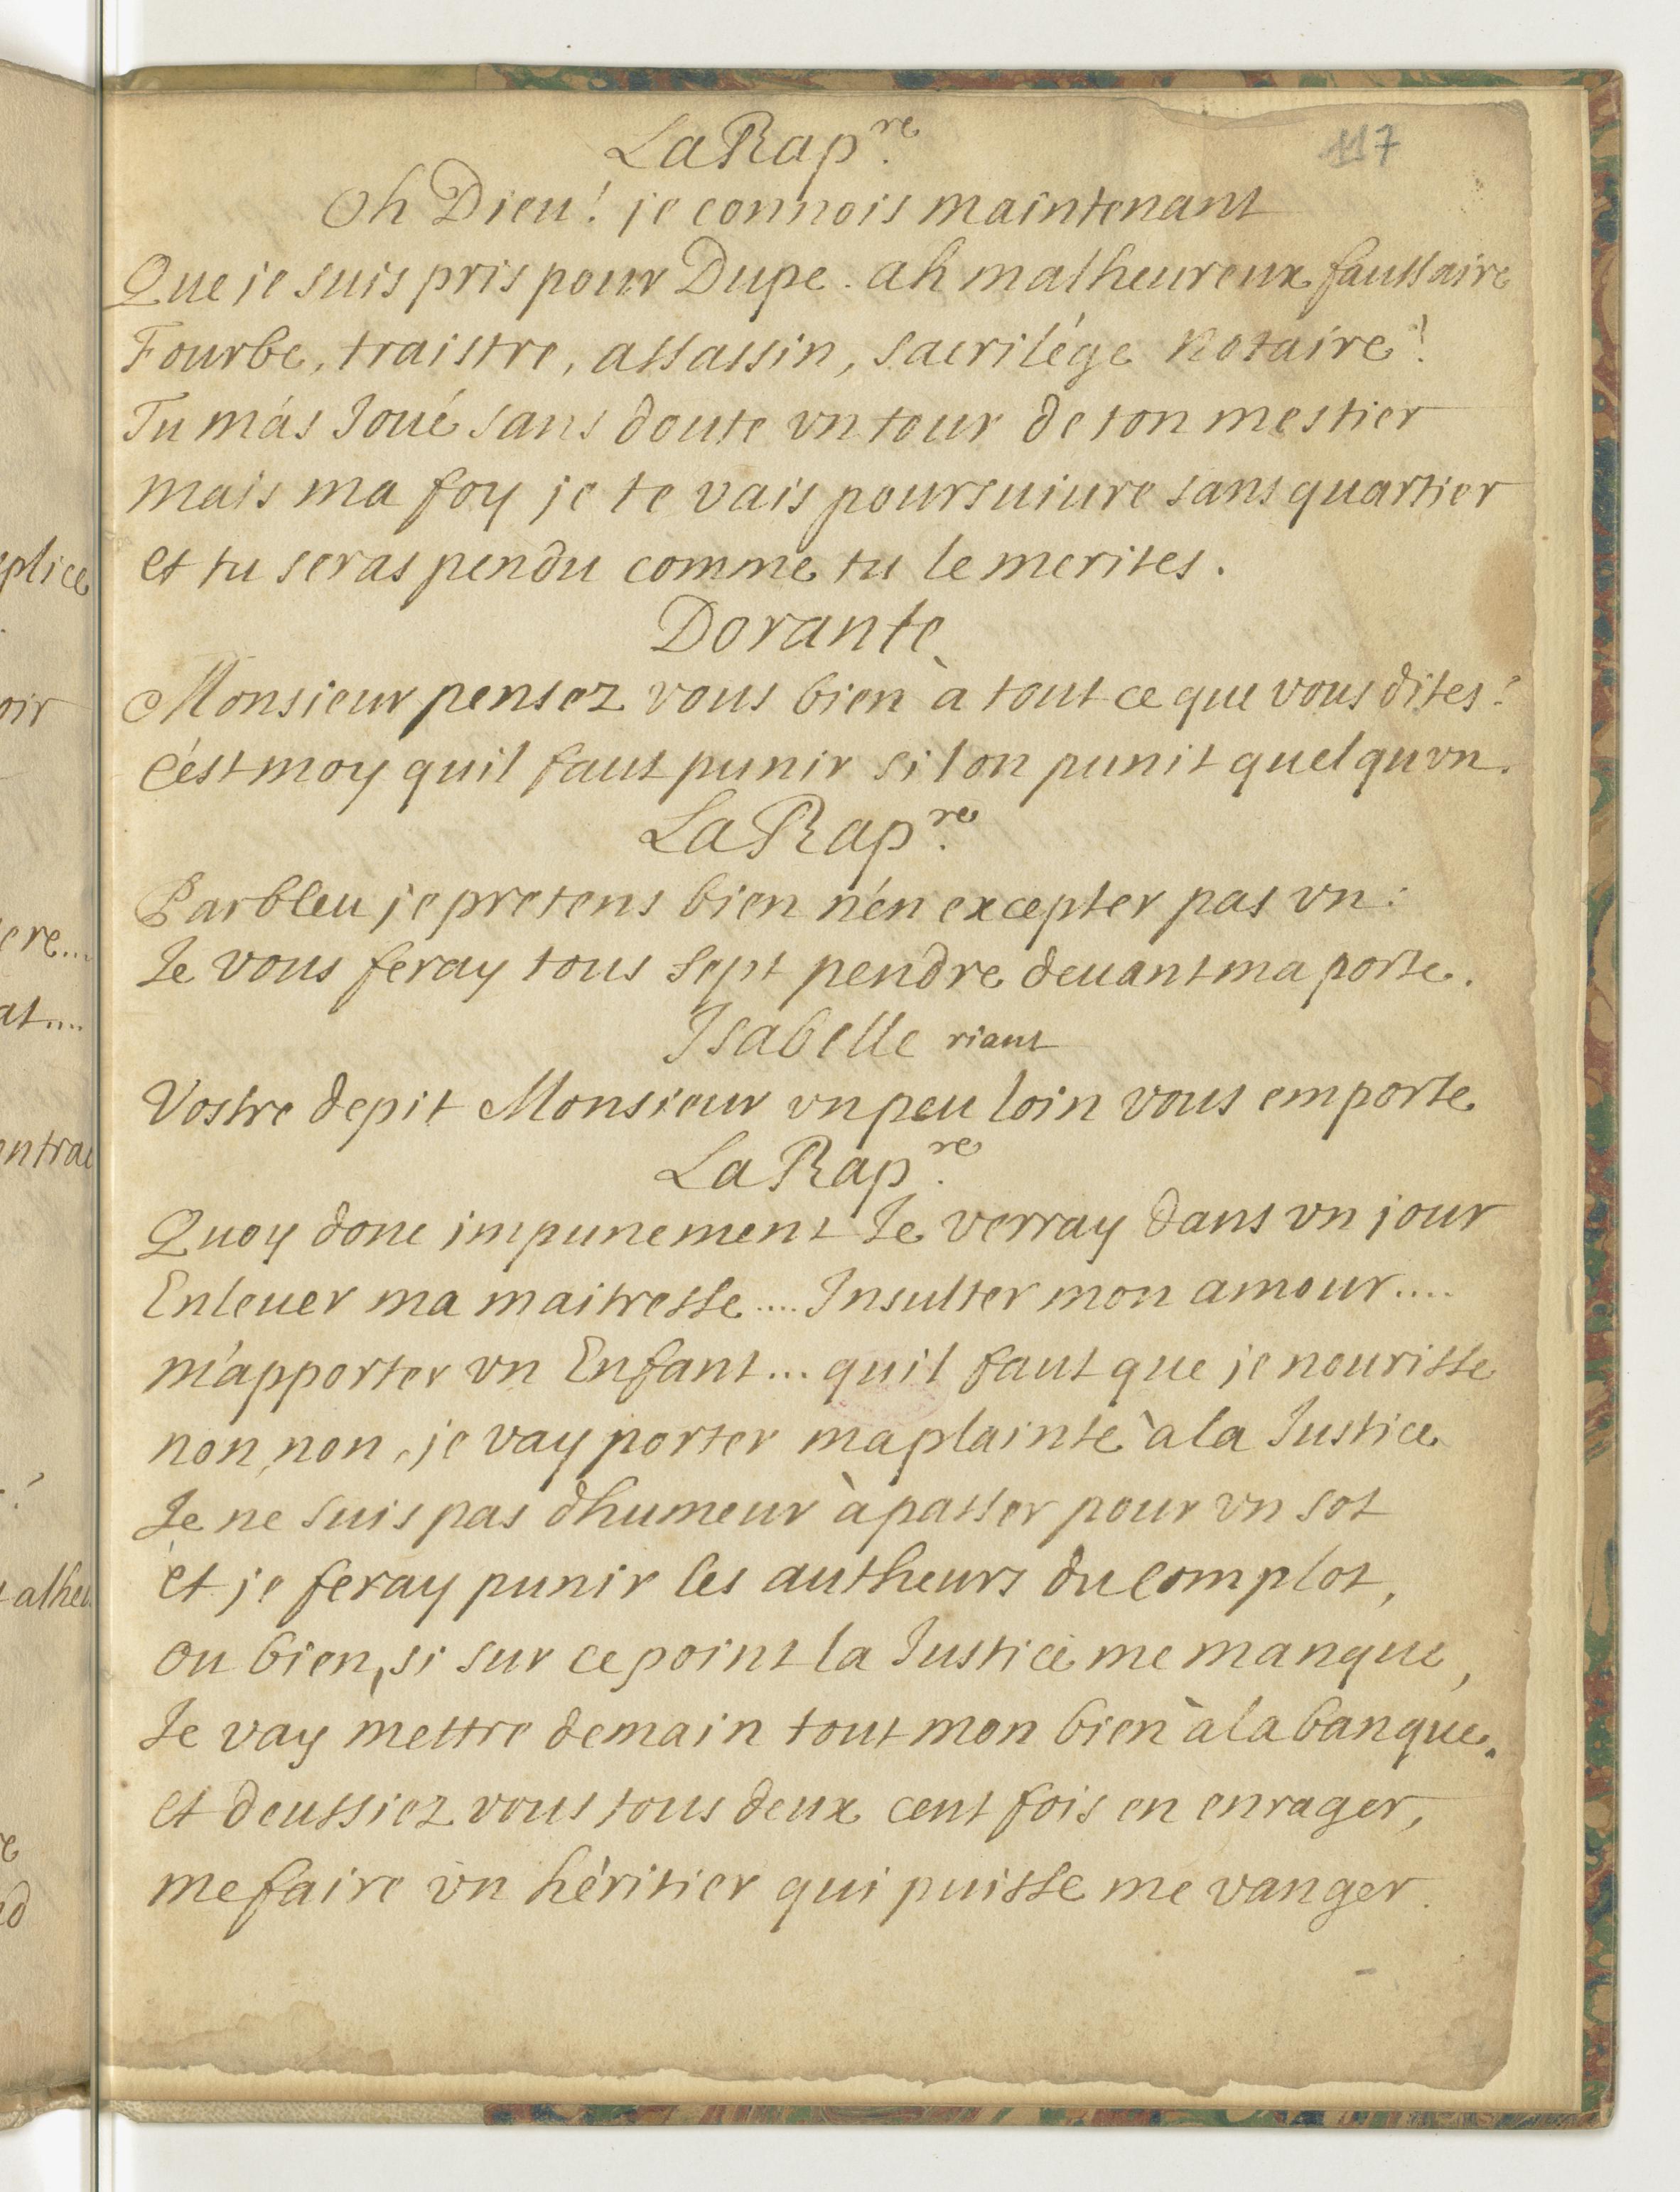 117
La Rap.re
Oh Dieu! je connois maintenant
Que je suis pris pour Dupe. ah malheureux faussaire
Fourbe, traistre, assassin, sacrilége Notaire!
Tu m'ás Joué sans doute vn tour de ton mestier
mais ma foy je te vais poursuiure sans quartier
et tu seras pendu comme tu le merites.
Dorante
Monsieur pensez vous bien à tout ce que vous dites?
C'ést moy quil faut punir si lon punit quelquvn.
La Rap.re
Parbleu je pretens bien n'én excepter pas vn:
Je vous feray tous sept pendre deuant ma porte.
Isabelle riant
Vostre depit Monsieur vn peu loin vous emporte
La Rap.re
Quoy donc impunement Je verray dans vn jour
Enleuer ma maitresse.... Insulter mon amour....
m'apporter vn Enfant... quil faut que je nourisse
non, non, je vay porter ma plainte à la Justice
Je ne suis pas dhumeur à passer pour vn sot
et je feray punir les autheurs du complot,
ou bien, si sur ce point la Justice me manque,
Je vay mettre demain tout mon bien à la banque.
et deussiez vous tous deux cent fois en enrager,
me faire vn héritier qui puisse me vanger.
plice
oir
ere...
at....
ntrac
alheu